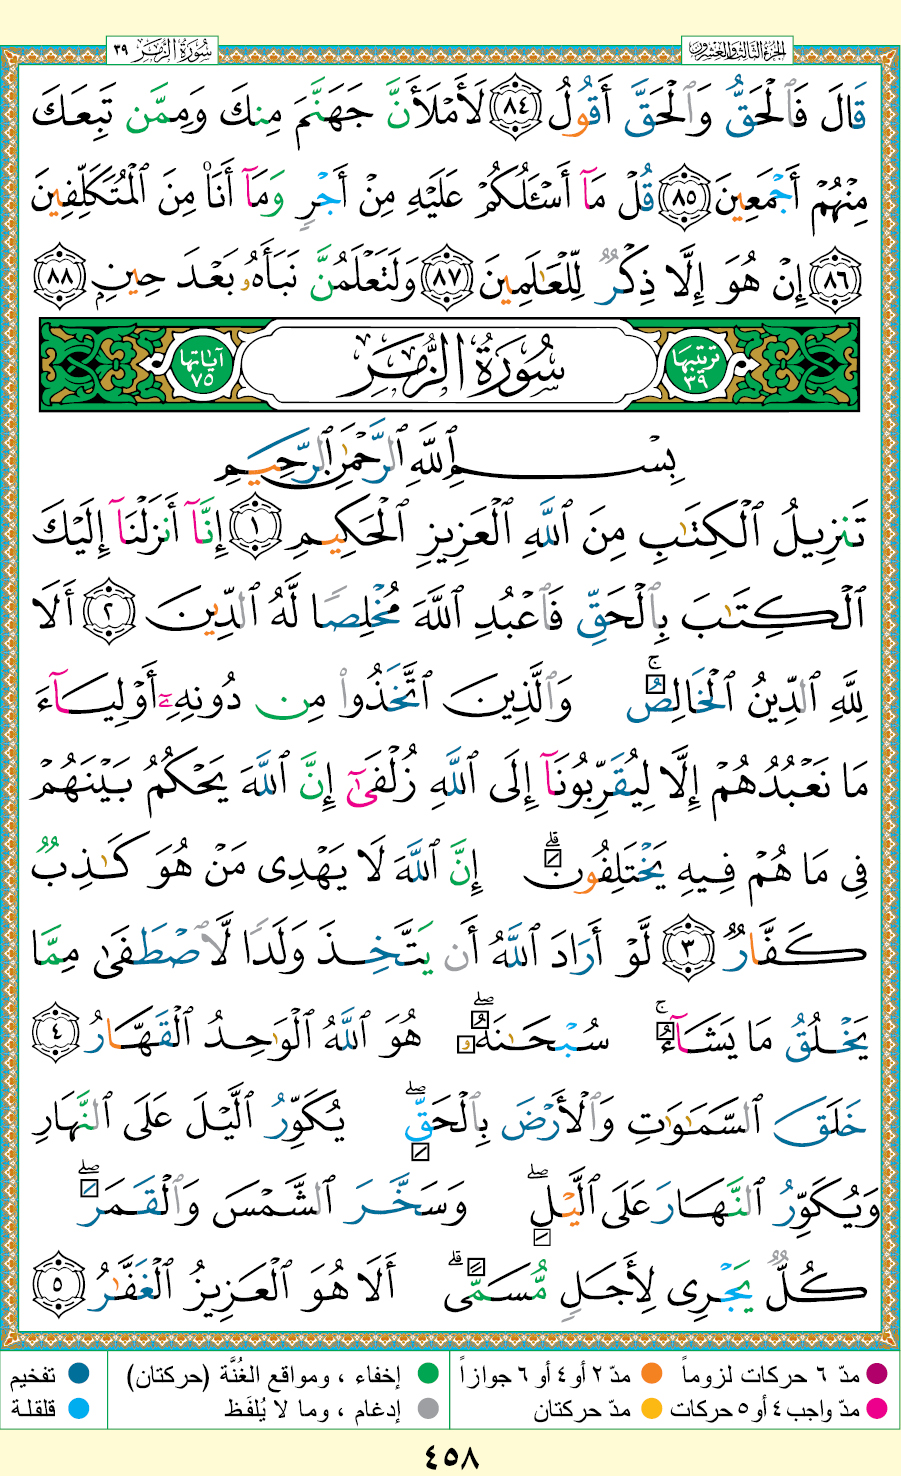 الجزء الثالث والعشرون سُورَةُ الزُّمَر ٣٩
قَالَ فَٱلْحَقُّ وَٱلْحَقَّ أَقُولُ ٨٤ لَأَمْلَأَنَّ جَهَنَّمَ مِنكَ وَمِمَّن تَبِعَكَ
مِنْهُمْ أَجْمَعِينَ ٨٥ قُلْ مَآ أَسْـَٔلُكُمْ عَلَيْهِ مِنْ أَجْرٍ وَمَآ أَنَا۠ مِنَ ٱلْمُتَكَلِّفِينَ
٨٦ إِنْ هُوَ إِلَّا ذِكْرٌ لِّلْعَـٰلَمِينَ ٨٧ وَلَتَعْلَمُنَّ نَبَأَهُۥ بَعْدَ حِينٍۭ ٨٨
ترتيبها ٣٩ سُورَةُ الزُّمَر آياتها ٧٥
بِسْمِ ٱللَّهِ ٱلرَّحْمَـٰنِ ٱلرَّحِيمِ
تَنزِيلُ ٱلْكِتَـٰبِ مِنَ ٱللَّهِ ٱلْعَزِيزِ ٱلْحَكِيمِ ١ إِنَّآ أَنزَلْنَآ إِلَيْكَ
ٱلْكِتَـٰبَ بِٱلْحَقِّ فَٱعْبُدِ ٱللَّهَ مُخْلِصًا لَّهُ ٱلدِّينَ ٢ أَلَا
لِلَّهِ ٱلدِّينُ ٱلْخَالِصُ ۚ وَٱلَّذِينَ ٱتَّخَذُوا۟ مِن دُونِهِۦٓ أَوْلِيَآءَ
مَا نَعْبُدُهُمْ إِلَّا لِيُقَرِّبُونَآ إِلَى ٱللَّهِ زُلْفَىٰٓ إِنَّ ٱللَّهَ يَحْكُمُ بَيْنَهُمْ
فِى مَا هُمْ فِيهِ يَخْتَلِفُونَ ۗ إِنَّ ٱللَّهَ لَا يَهْدِى مَنْ هُوَ كَـٰذِبٌ
كَفَّارٌ ٣ لَّوْ أَرَادَ ٱللَّهُ أَن يَتَّخِذَ وَلَدًا لَّٱصْطَفَىٰ مِمَّا
يَخْلُقُ مَا يَشَآءُ ۚ سُبْحَـٰنَهُۥ ۖ هُوَ ٱللَّهُ ٱلْوَٰحِدُ ٱلْقَهَّارُ ٤
خَلَقَ ٱلسَّمَـٰوَٰتِ وَٱلْأَرْضَ بِٱلْحَقِّ ۖ يُكَوِّرُ ٱلَّيْلَ عَلَى ٱلنَّهَارِ
وَيُكَوِّرُ ٱلنَّهَارَ عَلَى ٱلَّيْلِ ۖ وَسَخَّرَ ٱلشَّمْسَ وَٱلْقَمَرَ ۖ
كُلٌّ يَجْرِى لِأَجَلٍ مُّسَمًّى ۗ أَلَا هُوَ ٱلْعَزِيزُ ٱلْغَفَّـٰرُ ٥
مدّ ٦ حركات لزوماً مدّ ٢ أو ٤ أو ٦ جوازاً إخفاء ، ومواقع الغُنَّة (حركتان) تفخيم
مدّ واجب ٤ أو ٥ حركات مدّ حركتان إدغام ، وما لا يُلفَظ قلقلة
٤٥٨